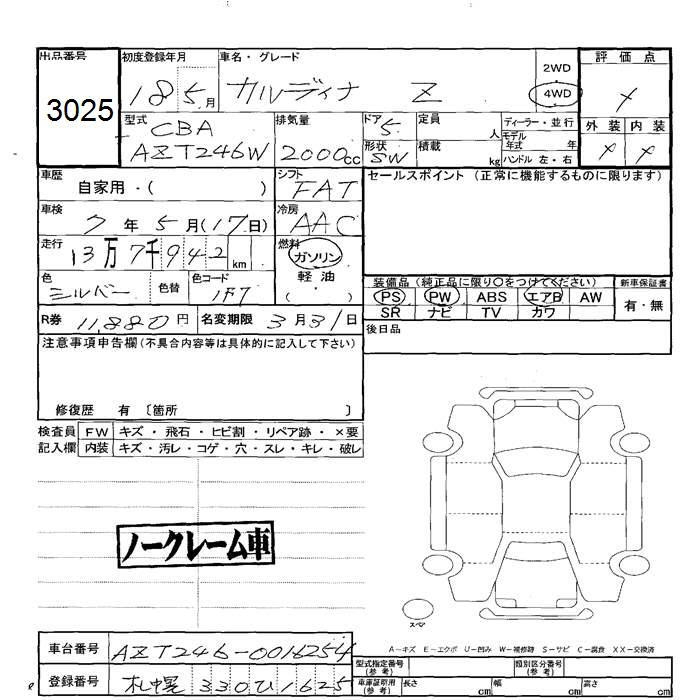 出品番号 初度登録年月 車名・グレード 2WD 評価点
3025 18 5月 カルディナ Z 4WD
外装 内装
型式 CBA AZT246W 排気量 2000cc ドア 5 定員 人 ディーラー・並行
形状 SW 積載 kg モデル年式 年
ハンドル 左・右
車歴 自家用・( ) シフト FAT セールスポイント (正常に機能するものに限ります)
車検 7年5月(17日) 冷房 AAC
走行 13万7千942km 燃料 ガソリン
軽油
( ・ )
色 シルバー 色替 色コード 1F7
装備品 (純正品に限り○をつけてください) 新車保証書
PS PW ABS エアB AW 有・無
SR ナビ TV カワ
R券 11,880円 名変期限 3月31日 後日品
注意事項申告欄(不具合内容等は具体的に記入して下さい)
修復歴 有 〔箇所 〕
検査員 FW キズ・飛石・ヒビ割・リペア跡・×要
記入欄 内装 キズ・汚レ・コゲ・穴・スレ・キレ・破レ
ノークレーム車
スペア
A-キズ E-エクボ U-凹み W-補修跡 S-サビ C-腐食 XX-交換済
車台番号 AZT246-0016254 型式指定番号(参考) 類別区分番号(参考)
登録番号 札幌 330ひ1625 車庫証明用(参考) 長さ cm 幅 cm 高さ cm